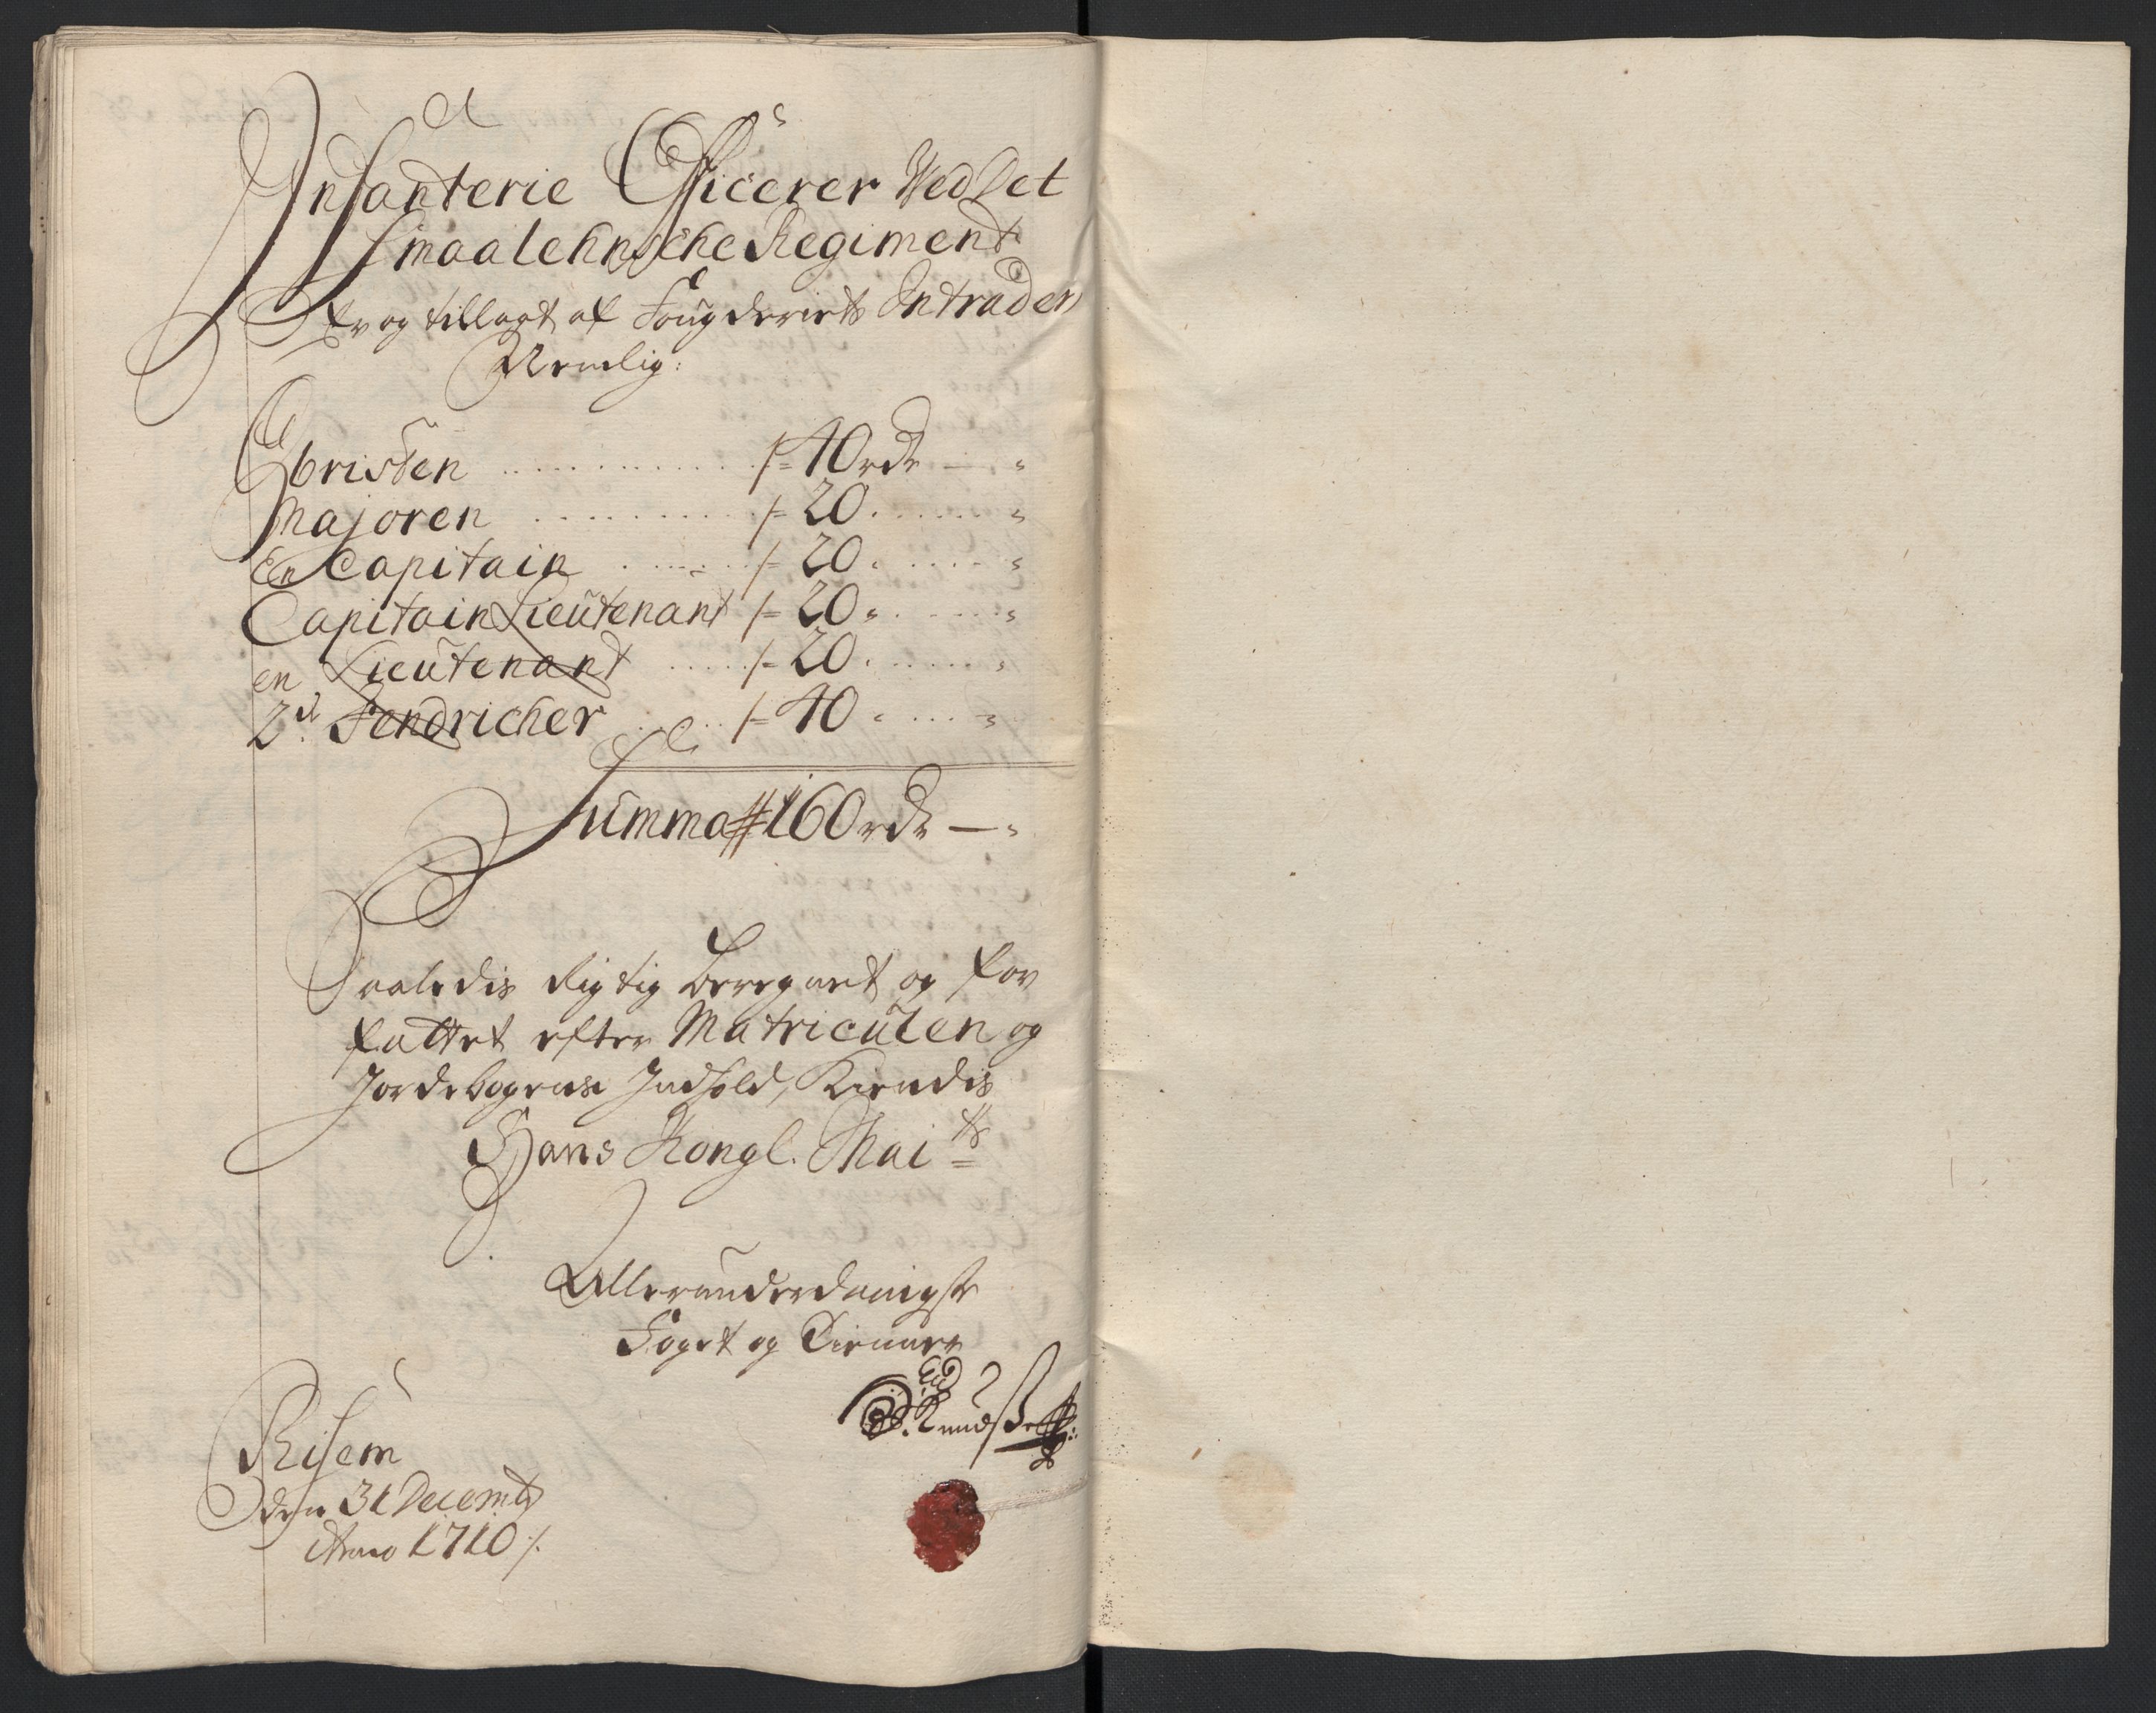 Infanterie Officerer Ved Det
Smaalehnsche Regiment
Er og tillagt af Fougderiets Intrader
Nemlig:
Obristen . . . . . . . . . . . . /= 40 rdr — "
Majoren . . . . . . . . . . /= 20 . . . . . . "
En Capitain . . . . . . /= 20 . . . . . . "
Capitain Lieutenant /= 20 " . . . . . "
en Lieutenant . . . . . /= 20 . . . . . . "
2de Fendricher . . . . /= 40 " . . . . "
Summa # 160 rdr — "
Saaledis Rigtig beregnet og for
fattet efter Matriculen og
Jordebogens Indhold, Kiendis
Hans Kongl. Mai ts
Allerunderdanigste
Foget og Tienner
Knudsen
Risem
den 31 Decembr
Anno 1710 /.